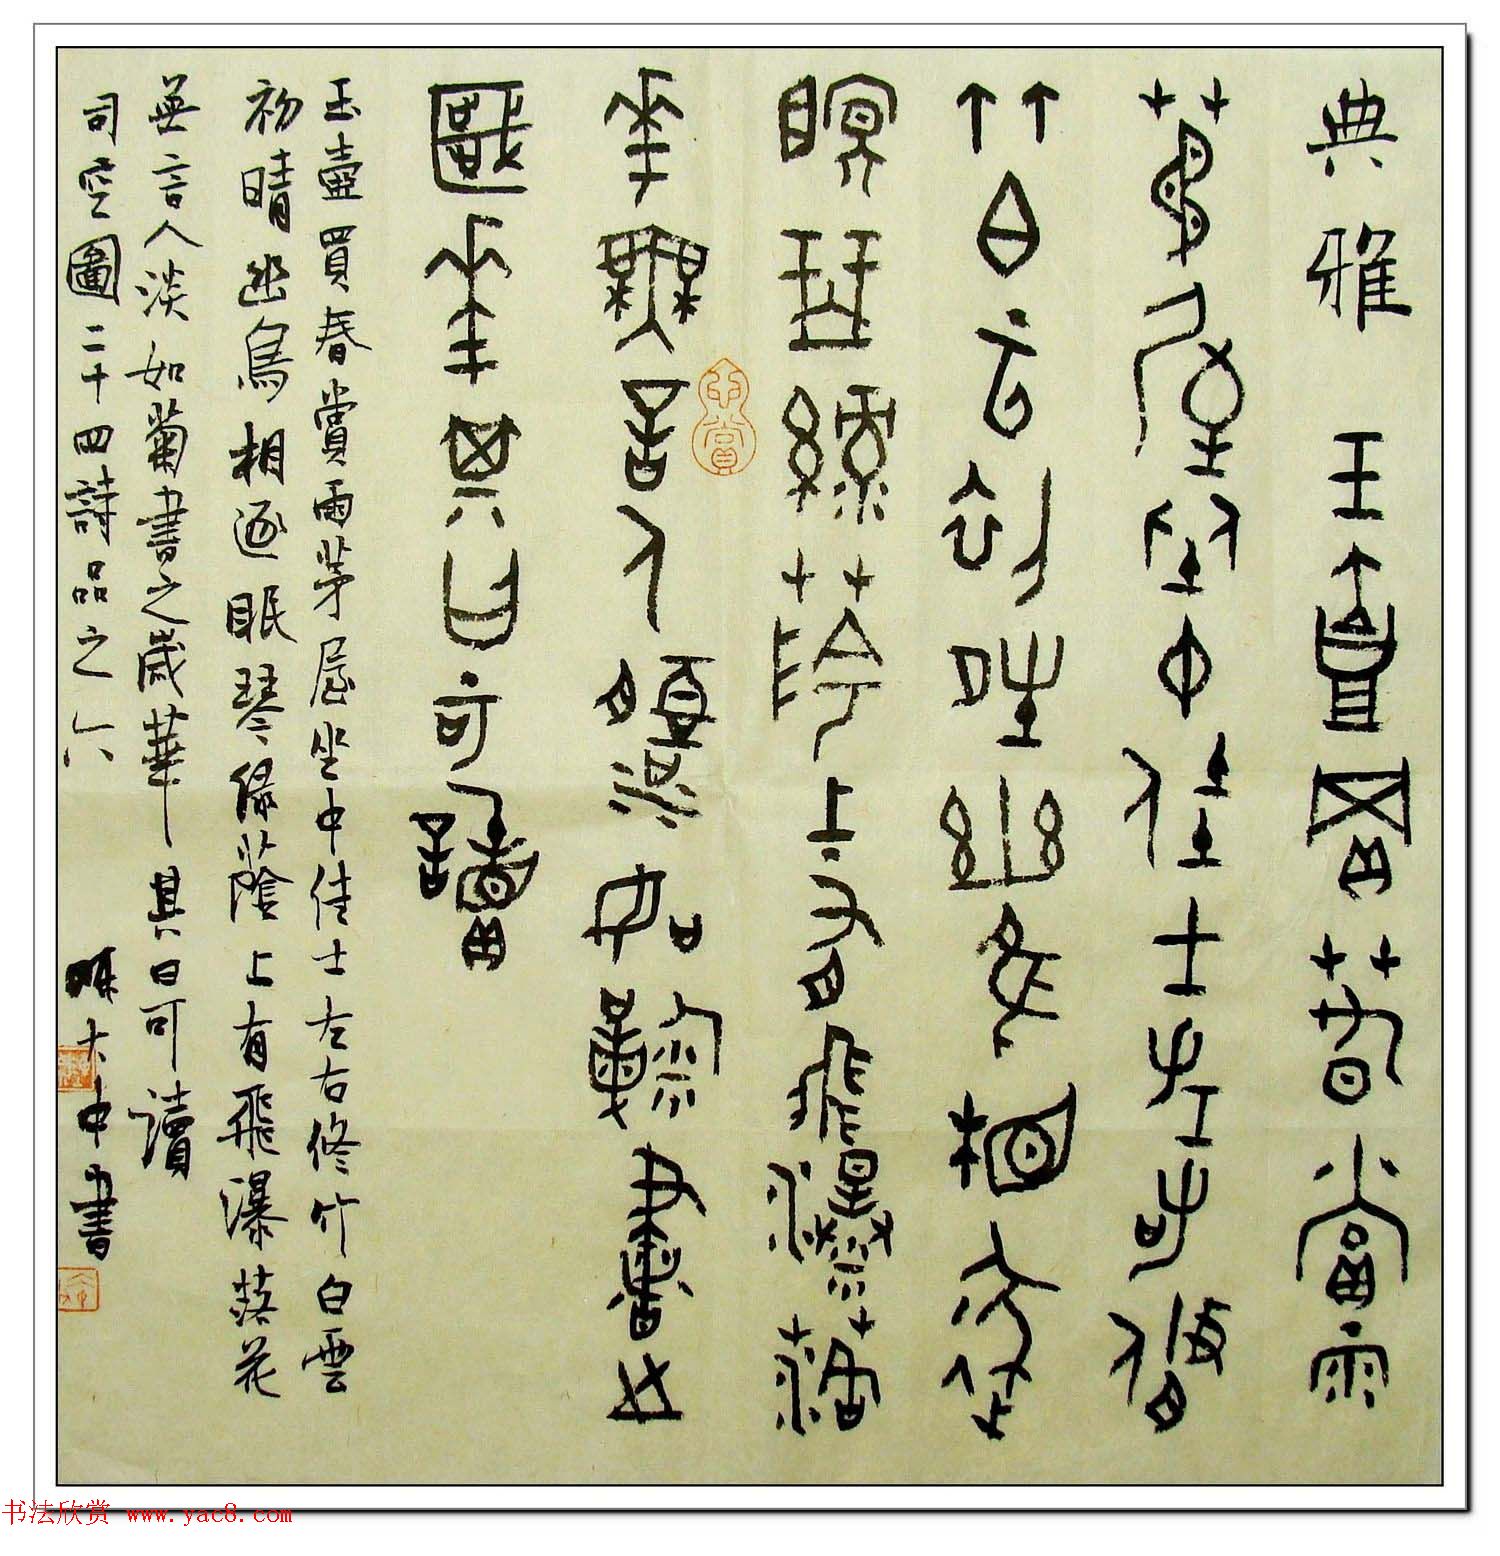 典雅 玉壺買春賞雨
茅屋坐中佳士左右修
竹白雲初晴幽鳥相逐
眠琴綠蔭上有飛瀑落
花無言人淡如菊書之
歲華其曰可讀
玉壺買春賞雨茅屋坐中佳士左右修竹白雲
初晴幽鳥相逐眠琴綠蔭上有飛瀑落花
無言人淡如菊書之歲華其曰可讀
司空圖二十四詩品之六 陳大中書
书法欣赏 www.yac8.com